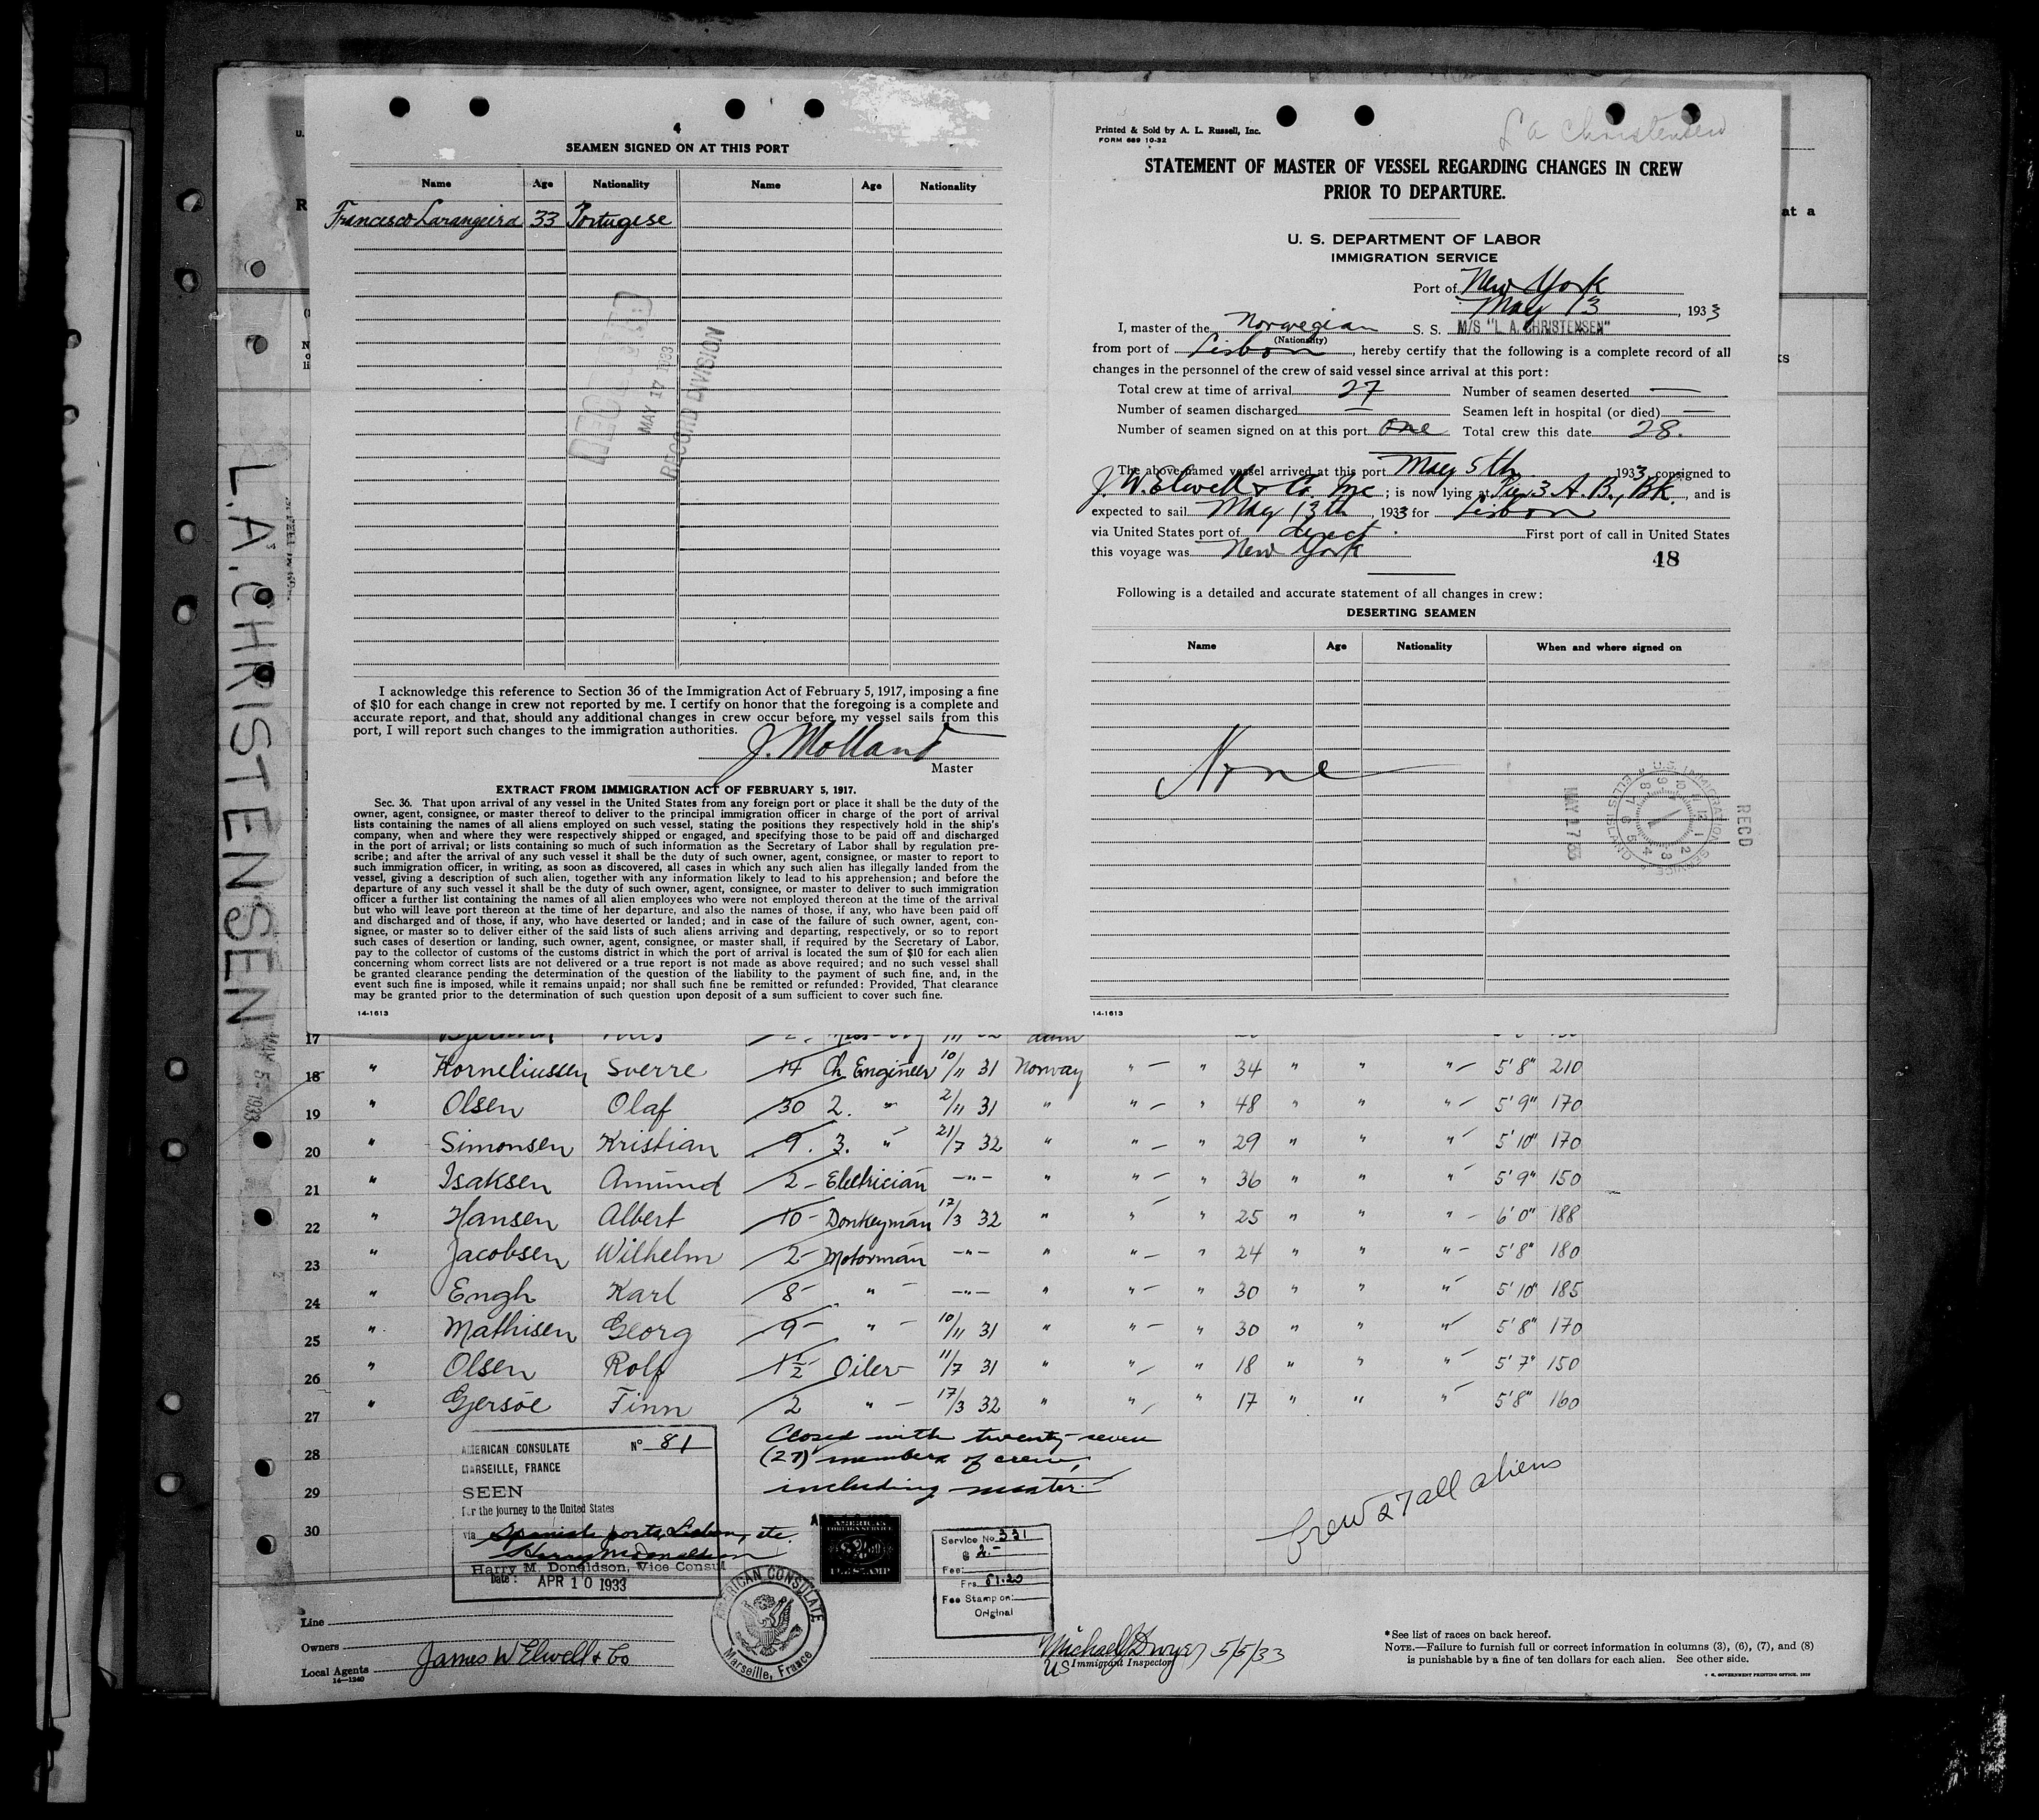 4
SEAMEN SIGNED ON AT THIS PORT
Name Age Nationality Name Age Nationality
Francesco Larangeira 33 Portugese
MAY 17 1933
RECORD DIVISION
I acknowledge this reference to Section 36 of the Immigration Act of February 5, 1917, imposing a fine
of $10 for each change in crew not reported by me. I certify on honor that the foregoing is a complete and
accurate report, and that, should any additional changes in crew occur before my vessel sails from this
port, I will report such changes to the immigration authorities.
J. Molland
Master
EXTRACT FROM IMMIGRATION ACT OF FEBRUARY 5, 1917.
Sec. 36. That upon arrival of any vessel in the United States from any foreign port or place it shall be the duty of the
owner, agent, consignee, or master thereof to deliver to the principal immigration officer in charge of the port of arrival
lists containing the names of all aliens employed on such vessel, stating the positions they respectively hold in the ship's
company, when and where they were respectively shipped or engaged, and specifying those to be paid off and discharged
in the port of arrival; or lists containing so much of such information as the Secretary of Labor shall by regulation pre-
scribe; and after the arrival of any such vessel it shall be the duty of such owner, agent, consignee, or master to report to
such immigration officer, in writing, as soon as discovered, all cases in which any such alien has illegally landed from the
vessel, giving a description of such alien, together with any information likely to lead to his apprehension; and before the
departure of any such vessel it shall be the duty of such owner, agent, consignee, or master to deliver to such immigration
officer a further list containing the names of all alien employees who were not employed thereon at the time of the arrival
but who will leave port thereon at the time of her departure, and also the names of those, if any, who have been paid off
and discharged and of those, if any, who have deserted or landed; and in case of the failure of such owner, agent, con-
signee, or master so to deliver either of the said lists of such aliens arriving and departing, respectively, or so to report
such cases of desertion or landing, such owner, agent, consignee, or master shall, if required by the Secretary of Labor,
pay to the collector of customs of the customs district in which the port of arrival is located the sum of $10 for each alien
concerning whom correct lists are not delivered or a true report is not made as above required; and no such vessel shall
be granted clearance pending the determination of the question of the liability to the payment of such fine, and, in the
event such fine is imposed, while it remains unpaid; nor shall such fine be remitted or refunded: Provided, That clearance
may be granted prior to the determination of such question upon deposit of a sum sufficient to cover such fine.
14-1613
Printed & Sold by A. L. Russell, Inc.
FORM 689 10-32
L A Christensen
STATEMENT OF MASTER OF VESSEL REGARDING CHANGES IN CREW
PRIOR TO DEPARTURE.
U. S. DEPARTMENT OF LABOR
IMMIGRATION SERVICE
Port of New York
May 13, 1933
I, master of the Norwegian S. S. M/S "L. A. CHRISTENSEN"
(Nationality)
from port of Lisbon, hereby certify that the following is a complete record of all
changes in the personnel of the crew of said vessel since arrival at this port:
Total crew at time of arrival 27 Number of seamen deserted —
Number of seamen discharged — Seamen left in hospital (or died) —
Number of seamen signed on at this port One Total crew this date 28.
The above-named vessel arrived at this port May 5th 1933, consigned to
J. W. Elwell & Co. Inc; is now lying at Pier 3 A. B., Bk., and is
expected to sail May 13th, 1933 for Lisbon
via United States port of direct. First port of call in United States
this voyage was New York
48
Following is a detailed and accurate statement of all changes in crew:
DESERTING SEAMEN
Name Age Nationality When and where signed on
None
U.S. IMMIGRATION SERVICE ELLIS ISLAND
RECD
MAY 17 33
14-1613
L.A. CHRISTENSEN
MAY 5 - 1933
17
18 " Korneliussen Sverre 14 Ch Engineer 10/11 31 Norway " — " 34 " " " 5'8" 210
19 " Olsen Olaf 30 2. " 2/11 31 " " — " 48 " " " 5'9" 170
20 " Simonsen Kristian 9. 3. " 21/7 32 " " — " 29 " " " 5'10" 170
21 " Isaksen Amund 2 - Electrician —"— " " — " 36 " " " 5'9" 150
22 " Hansen Albert 10 - Donkeyman 17/3 32 " " — " 25 " " " 6'0" 188
23 " Jacobsen Wilhelm 2 - Motorman —"— " " — " 24 " " " 5'8" 180
24 " Engh Karl 8 - " —"— " " — " 30 " " " 5'10" 185
25 " Mathisen Georg 9 - " 10/11 31 " " — " 30 " " " 5'8" 170
26 " Olsen Rolf 1½ - Oiler 11/7 31 " " — " 18 " " " 5'7" 150
27 " Gjersöe Finn 2 " 17/3 32 " " — " 17 " " " 5'8" 160
28
29
30
Closed with twenty-seven
(27) members of crew,
including master.
AMERICAN CONSULATE Nº 81
MARSEILLE, FRANCE
SEEN
For the journey to the United States
via Spanish ports, Lisbon, etc.
Harry M. Donaldson
Harry M. Donaldson, Vice Consul
Date: APR 10 1933
AMERICAN CONSULATE Marseille, France
AMERICAN
FOREIGN SERVICE
FEE STAMP
Service No. 331
$ 2.-
Fee:
Frs. 51.20
Fee Stamp on:
Original
Crew 27 all aliens
Line
Owners
Local Agents James W Elwell & Co
14—1240
Michael J Dwyer 5/5/33
US Immigrant Inspector
*See list of races on back hereof.
NOTE.—Failure to furnish full or correct information in columns (3), (6), (7), and (8)
is punishable by a fine of ten dollars for each alien. See other side.